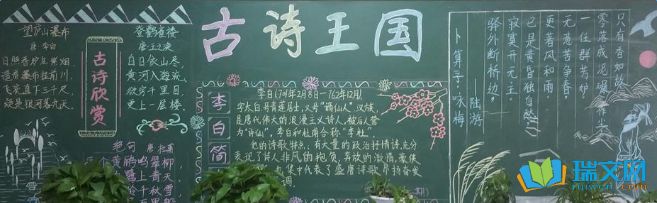 古诗王国
望庐山瀑布
唐 李白
日照香炉生紫烟
遥看瀑布挂前川
飞流直下三千尺
疑是银河落九天
古诗欣赏
登鹳雀楼
唐王之涣
白日依山尽
黄河入海流
欲穷千里目
更上一层楼
绝句
李白简
李白(701年2月8日—762年12月)
字太白,号青莲居士,又号"谪仙人",汉族,
是唐代伟大的浪漫主义诗人,被后人誉
为"诗仙",李白和杜甫合称"李杜"。
他的诗歌
有大量的政治抒情诗,充分
表现了诗人非凡的抱负,奔放的激情,豪侠
集中代表了盛唐诗歌昂扬奋发
卜算子·咏梅
陆游
驿外断桥边,
寂寞开无主。
已是黄昏独自愁,
更著风和雨。
无意苦争春,
一任群芳妒。
零落成泥碾作尘,
只有香如故。
瑞文网